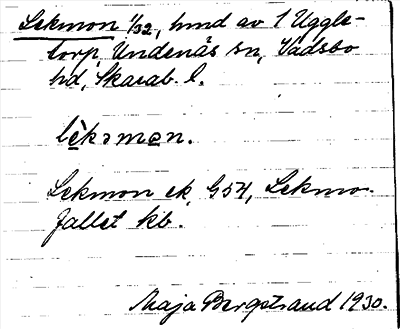 Lekmon 1/32, hmd av 1 Uggle-
torp, Undenäs sn, Vadsbo
hd, Skarab. l.
lèkəmɷn.
Lekmon ek G54, Lekmo-
fallet kb.
Maja Bergstrand 1930.